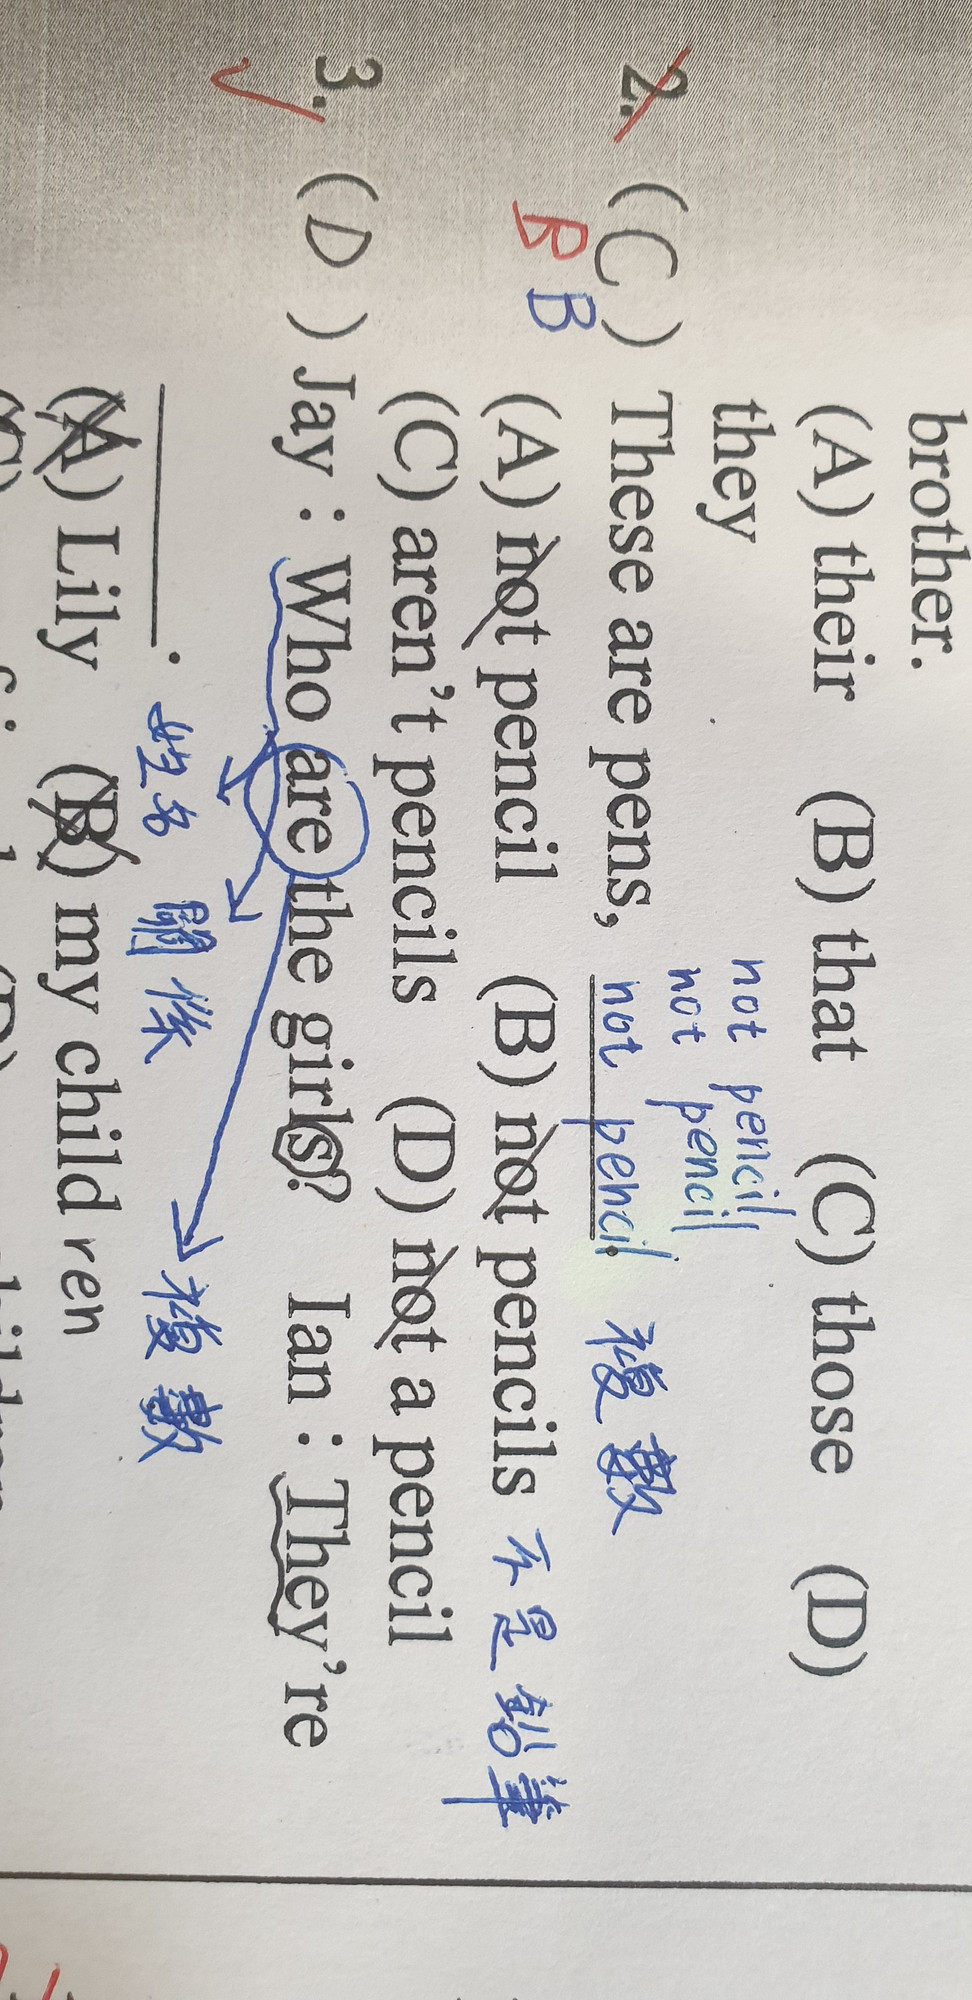 brother.
(A) their (B) that (C) those (D)
they
not pencil,
not pencil
2. (C) These are pens, not pencil. 複數
B B
(A) not pencil (B) not pencils 不是鉛筆
(C) aren't pencils (D) not a pencil
3. (D) Jay : Who are the girls? Ian : They're
. 姓名 關係 複數
(A) Lily (B) my child ren